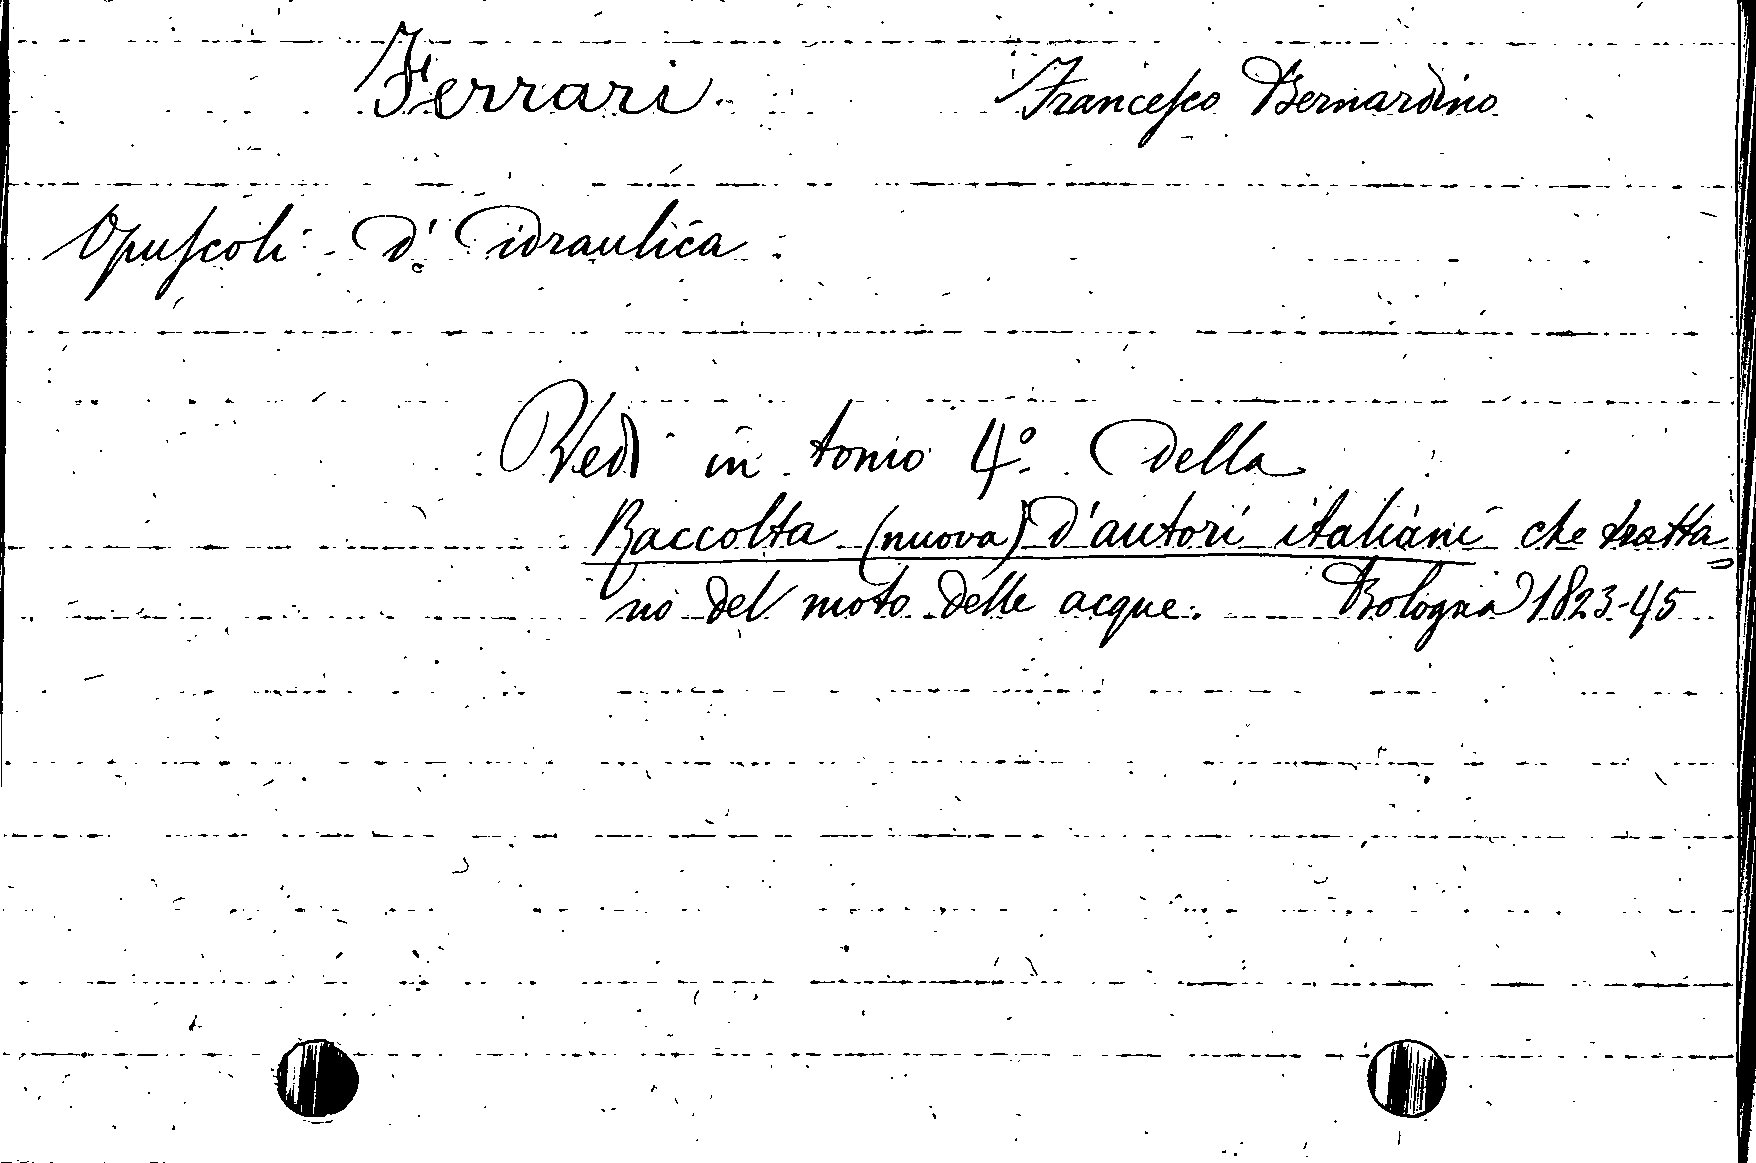 Ferrari Francesco Bernardino
Opuscoli d'idraulica
Vedi in tomo 4º della
Raccolta (nuova) d'autori italiani che tratta=
no del moto delle acque. Bologna 1823-45